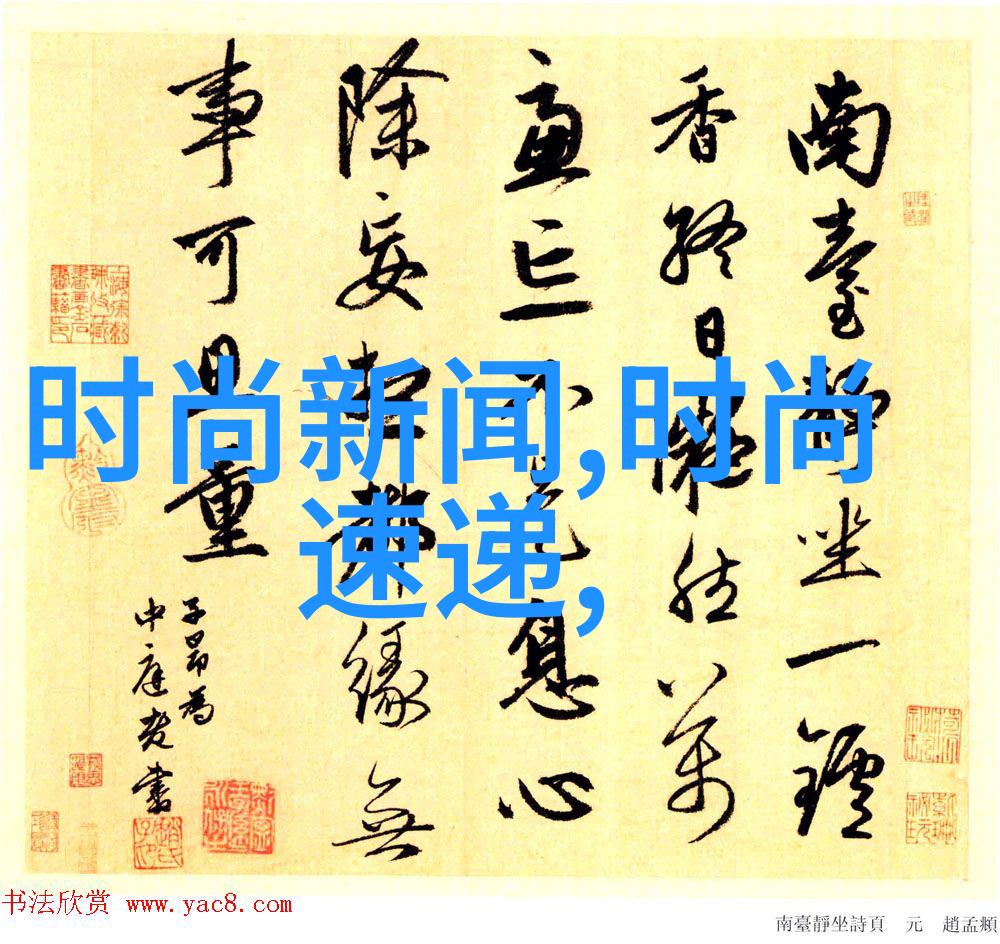 南臺靜坐一鑪
香終日凝然萬
慮亡不是息心
除妄想都緣無
事可量
子昂為
中庭老書
时尚新闻,时尚
速递,
书法欣赏 www.yac8.com
南臺靜坐詩頁 元 趙孟頫